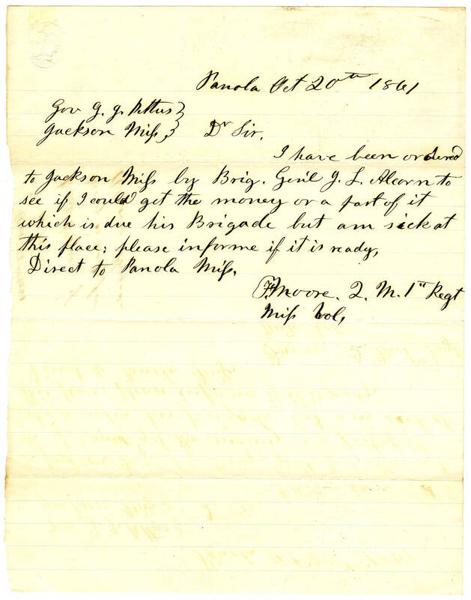 Panola Oct 20th 1861
Gov J. J. Pettus}
Jackson Miss,} Dr Sir.
I have been ordered
to Jackson Miss by Brig. Genl J. L. Alcorn to
see if I could get the money or a part of it
which is due his Brigade but am sick at
this place; please informe if it is ready,
Direct to Panola Miss,
Moore. Q. M. 1st Regt
Miss Vol,